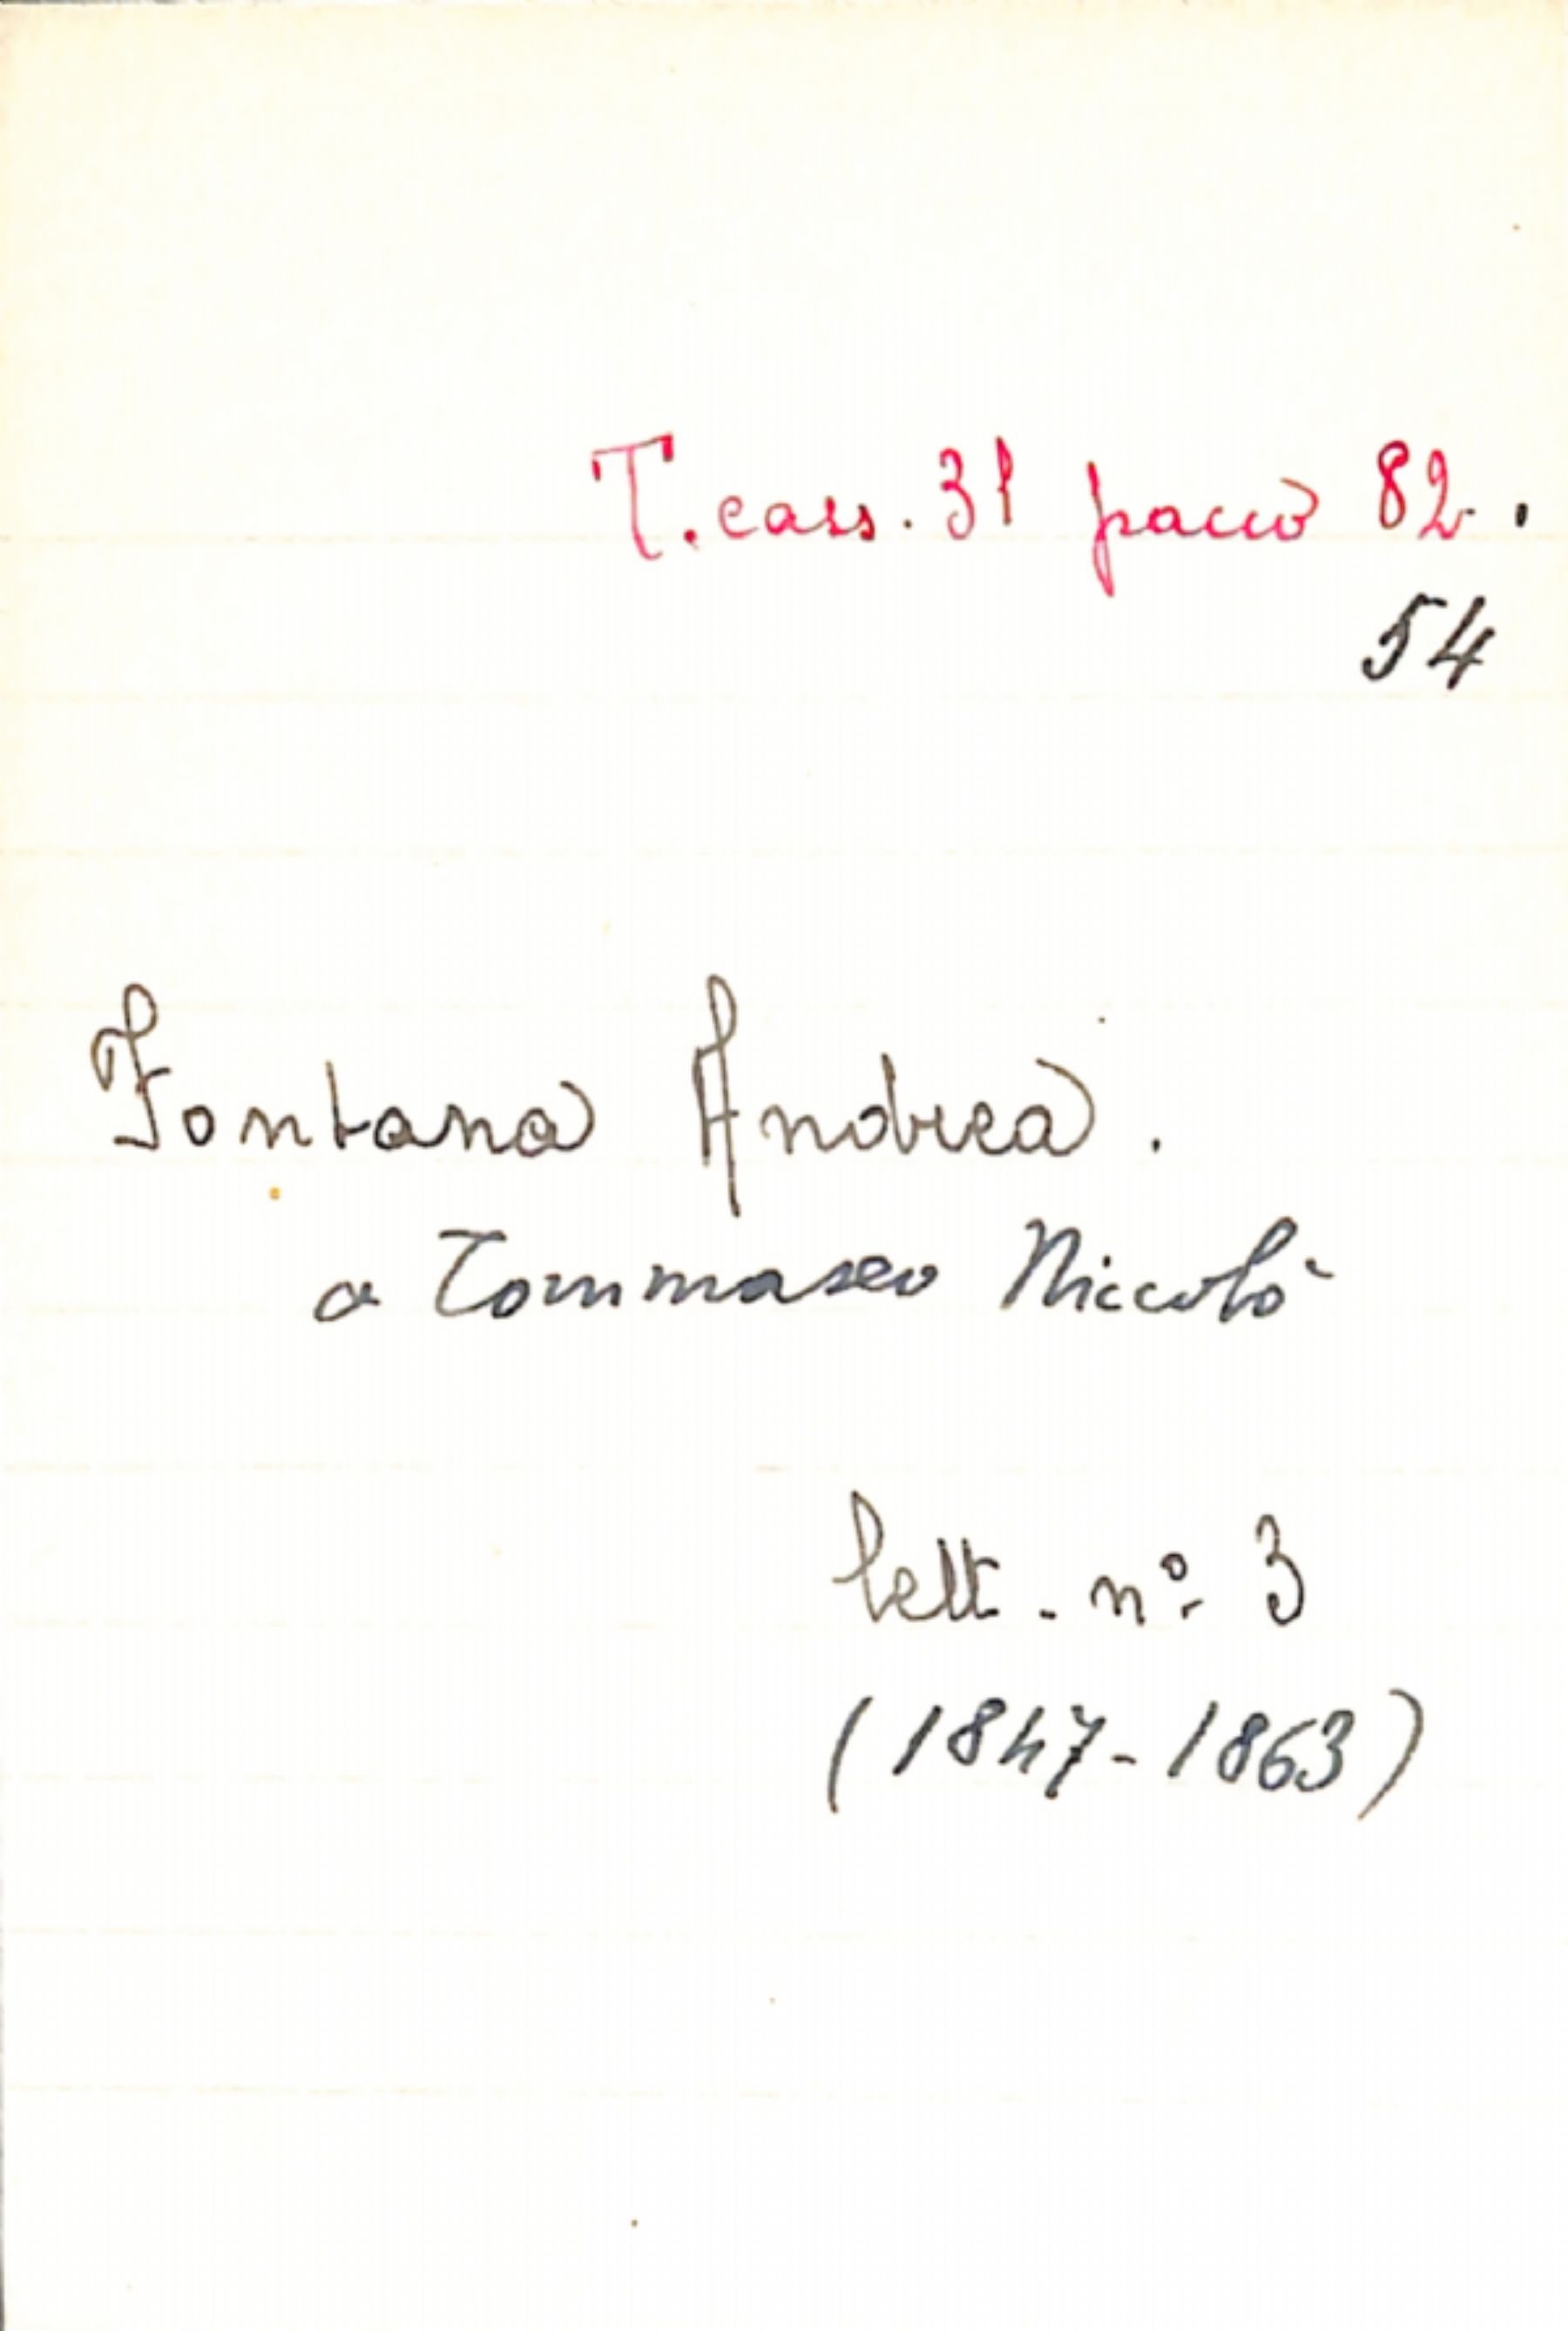 T. cass. 31 pacco 82.
54
Fontana Andrea.
a Tommaseo Niccolò
lett. nº 3
(1847-1863)